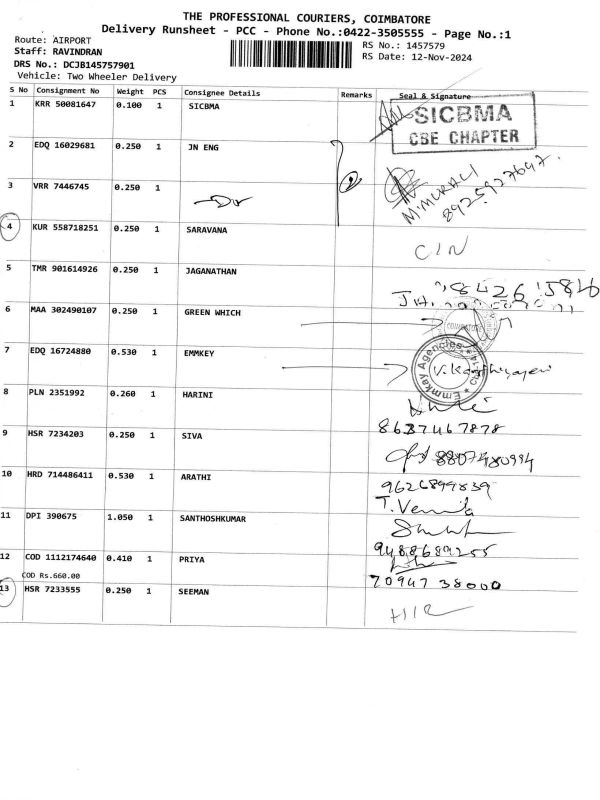 THE PROFESSIONAL COURIERS, COIMBATORE
Delivery Runsheet - PCC - Phone No.:0422-3505555 - Page No.:1
Route: AIRPORT
RS No.: 1457579
Staff: RAVINDRAN
RS Date: 12-Nov-2024
DRS No.: DCJB145757901
Vehicle: Two Wheeler Delivery
S No Consignment No Weight PCS Consignee Details Remarks Seal & Signature
1 KRR 50081647 0.100 1 SICBMA
SICBMA
CBE CHAPTER
2 EDQ 16029681 0.250 1 JN ENG
M.MURALI
8925927647
3 VRR 7446745 0.250 1
4 KUR 558718251 0.250 1 SARAVANA
CIN
5 TMR 901614926 0.250 1 JAGANATHAN
6 MAA 302490107 0.250 1 GREEN WHICH
COIMBATORE
7 EDQ 16724880 0.530 1 EMMKEY
Emmkay Agencies
8 PLN 2351992 0.260 1 HARINI
8637467878
9 HSR 7234203 0.250 1 SIVA
8807480994
10 HRD 714486411 0.530 1 ARATHI
9626899839
11 DPI 390675 1.050 1 SANTHOSHKUMAR
9488689255
12 COD 1112174640 0.410 1 PRIYA
COD Rs.660.00
70947 38000
13 HSR 7233555 0.250 1 SEEMAN